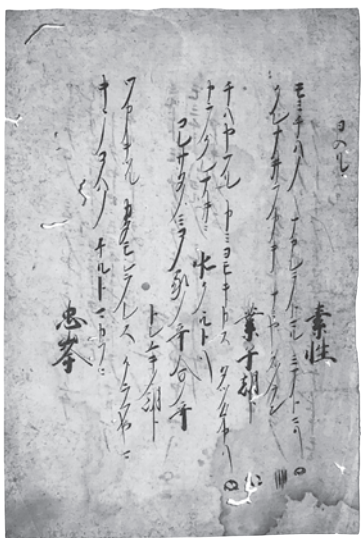 ヨメル
素性
モミチハノ ナカレテトマル ミナトニハ
クレナヰフカキ ナミヤタツラン
業平朝臣
チハヤフル カミヨモキカス タツタカハ
カラクレナヰニ 水ククルトハ
コレサタノミコノ家ノ哥合ノ哥
トシユキノ朝臣
ワカキツル 方モシラレス クラフヤマ
キキノコノハノ チルトマカフニ
忠岑